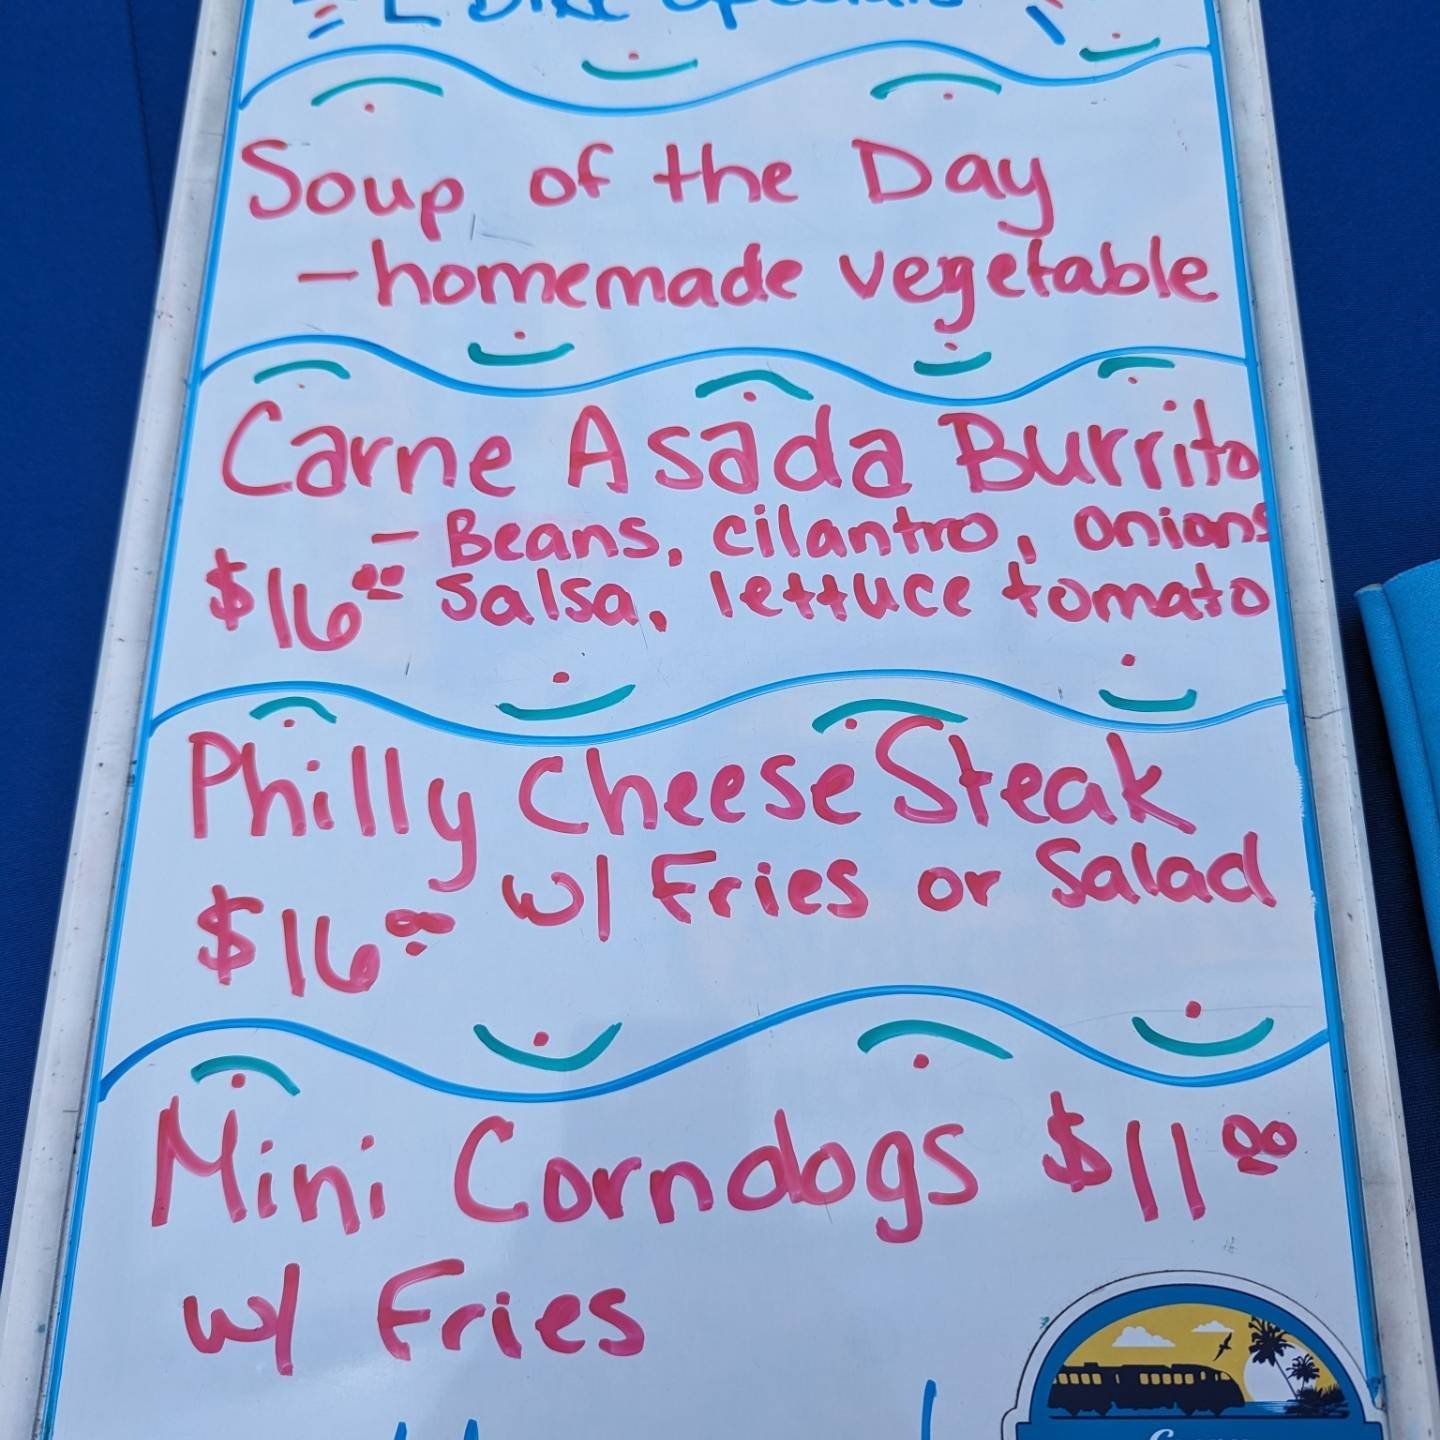 Specials
Soup of the Day
- homemade vegetable
Carne Asada Burrito
- Beans, cilantro, onions
$16.00 Salsa, lettuce tomato
Philly Cheese Steak
w/ Fries or Salad
$16.00
Mini Corndogs $11.00
w/ Fries